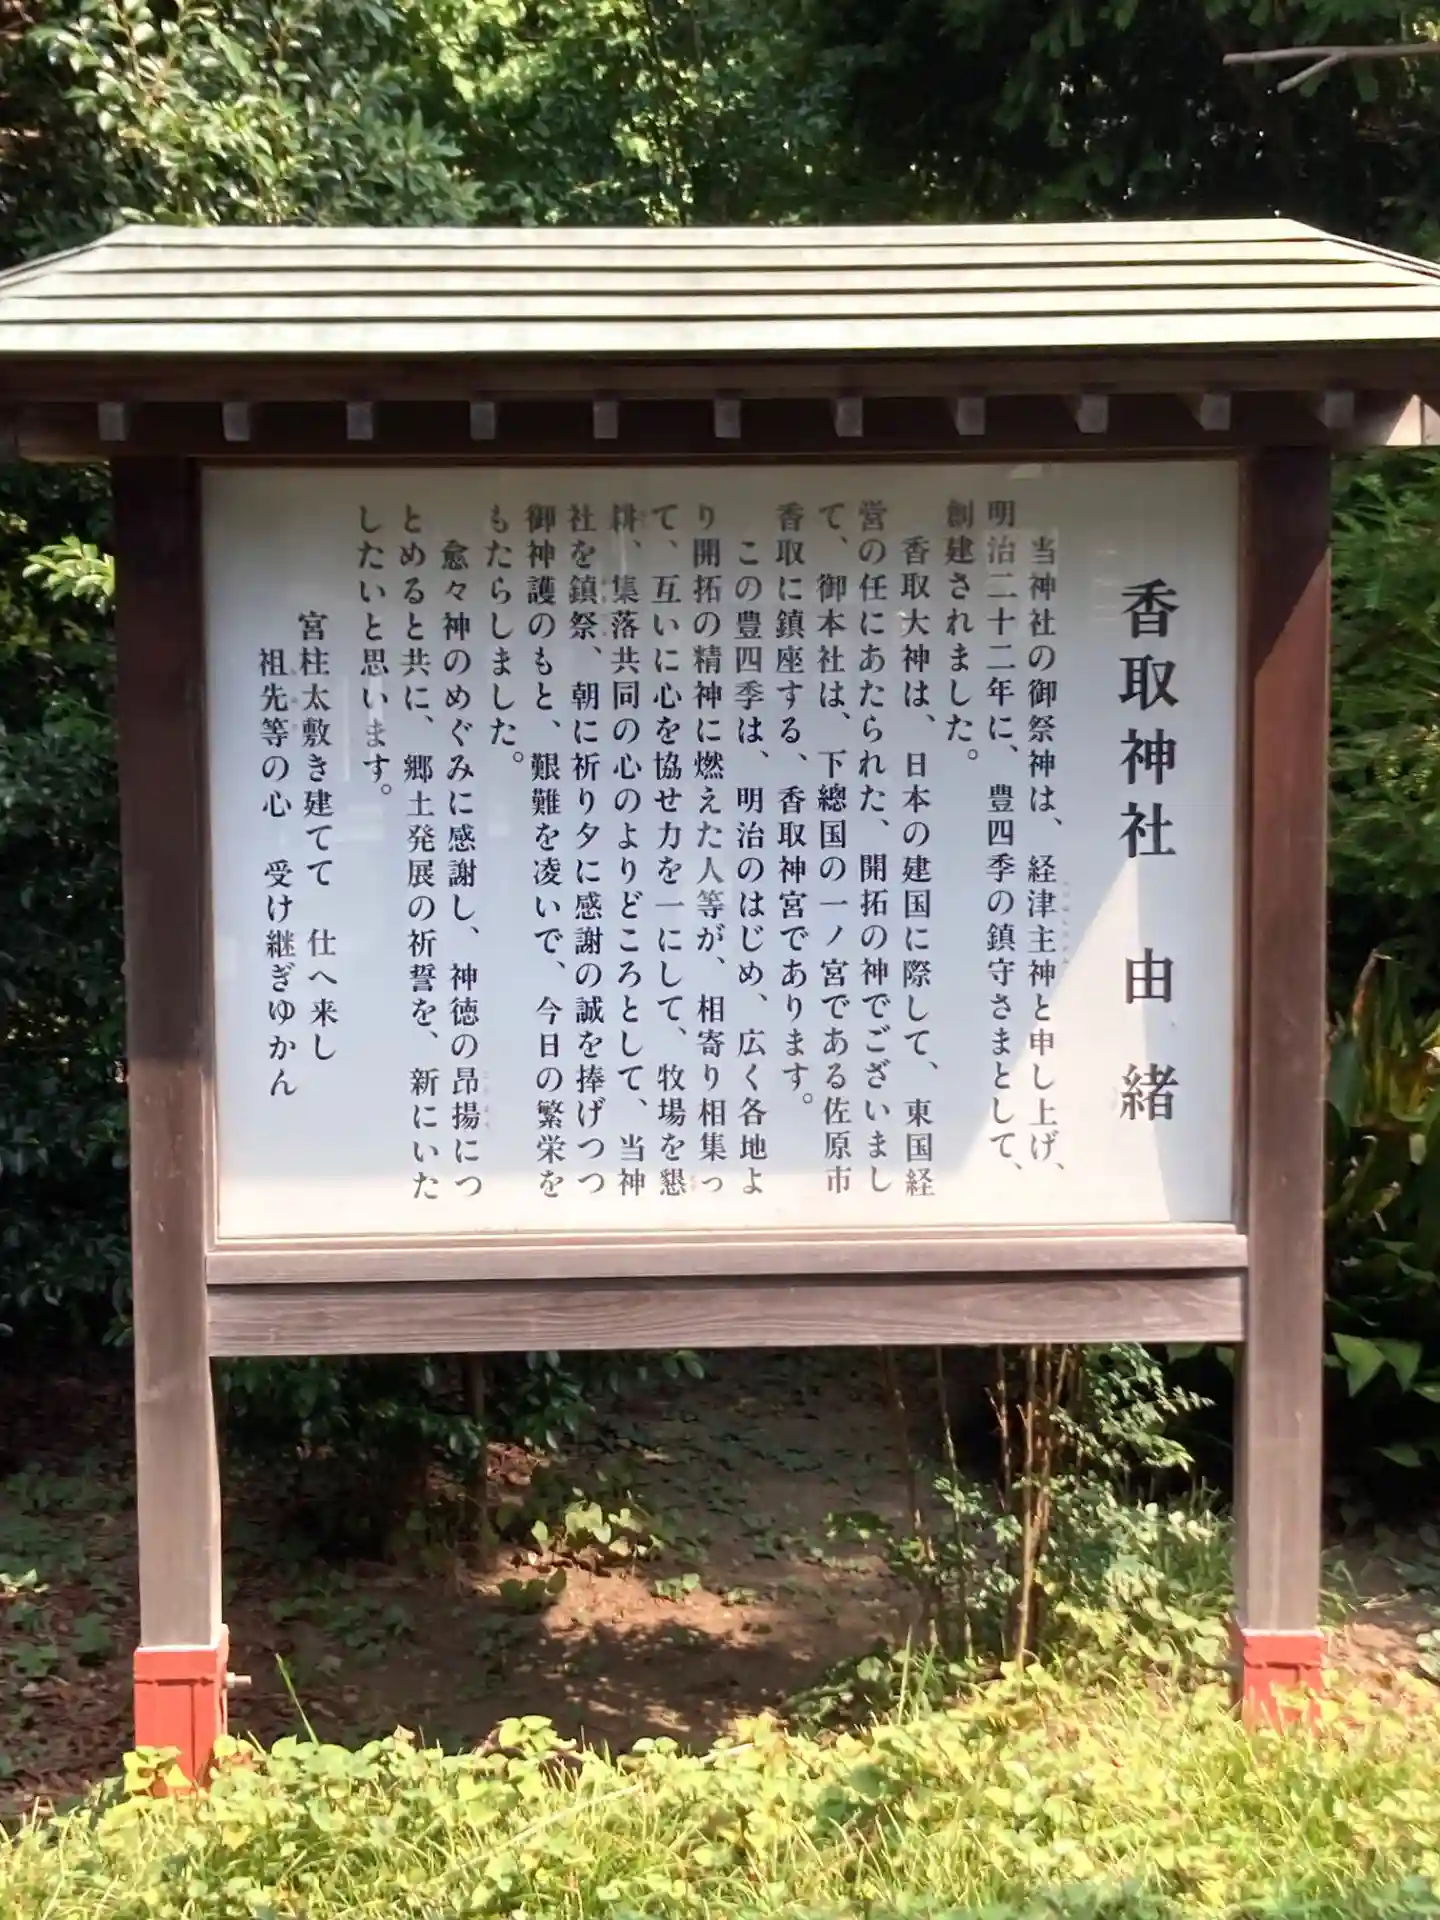 香取神社 由緒
当神社の御祭神は、経津主神と申し上げ、
明治二十二年に、豊四季の鎮守さまとして、
創建されました。
香取大神は、日本の建国に際して、東国経
営の任にあたられた、開拓の神でございまし
て、御本社は、下總国の一ノ宮である佐原市
香取に鎮座する、香取神宮であります。
この豊四季は、明治のはじめ、広く各地よ
り開拓の精神に燃えた人等が、相寄り相集っ
て、互いに心を協せ力を一にして、牧場を懇
耕、集落共同の心のよりどころとして、当神
社を鎮祭、朝に祈り夕に感謝の誠を捧げつつ
御神護のもと、艱難を凌いで、今日の繁栄を
もたらしました。
愈々神のめぐみに感謝し、神徳の昂揚につ
とめると共に、郷土発展の祈誓を、新にいた
したいと思います。
宮柱太敷き建てて 仕へ来し
祖先等の心 受け継ぎゆかん